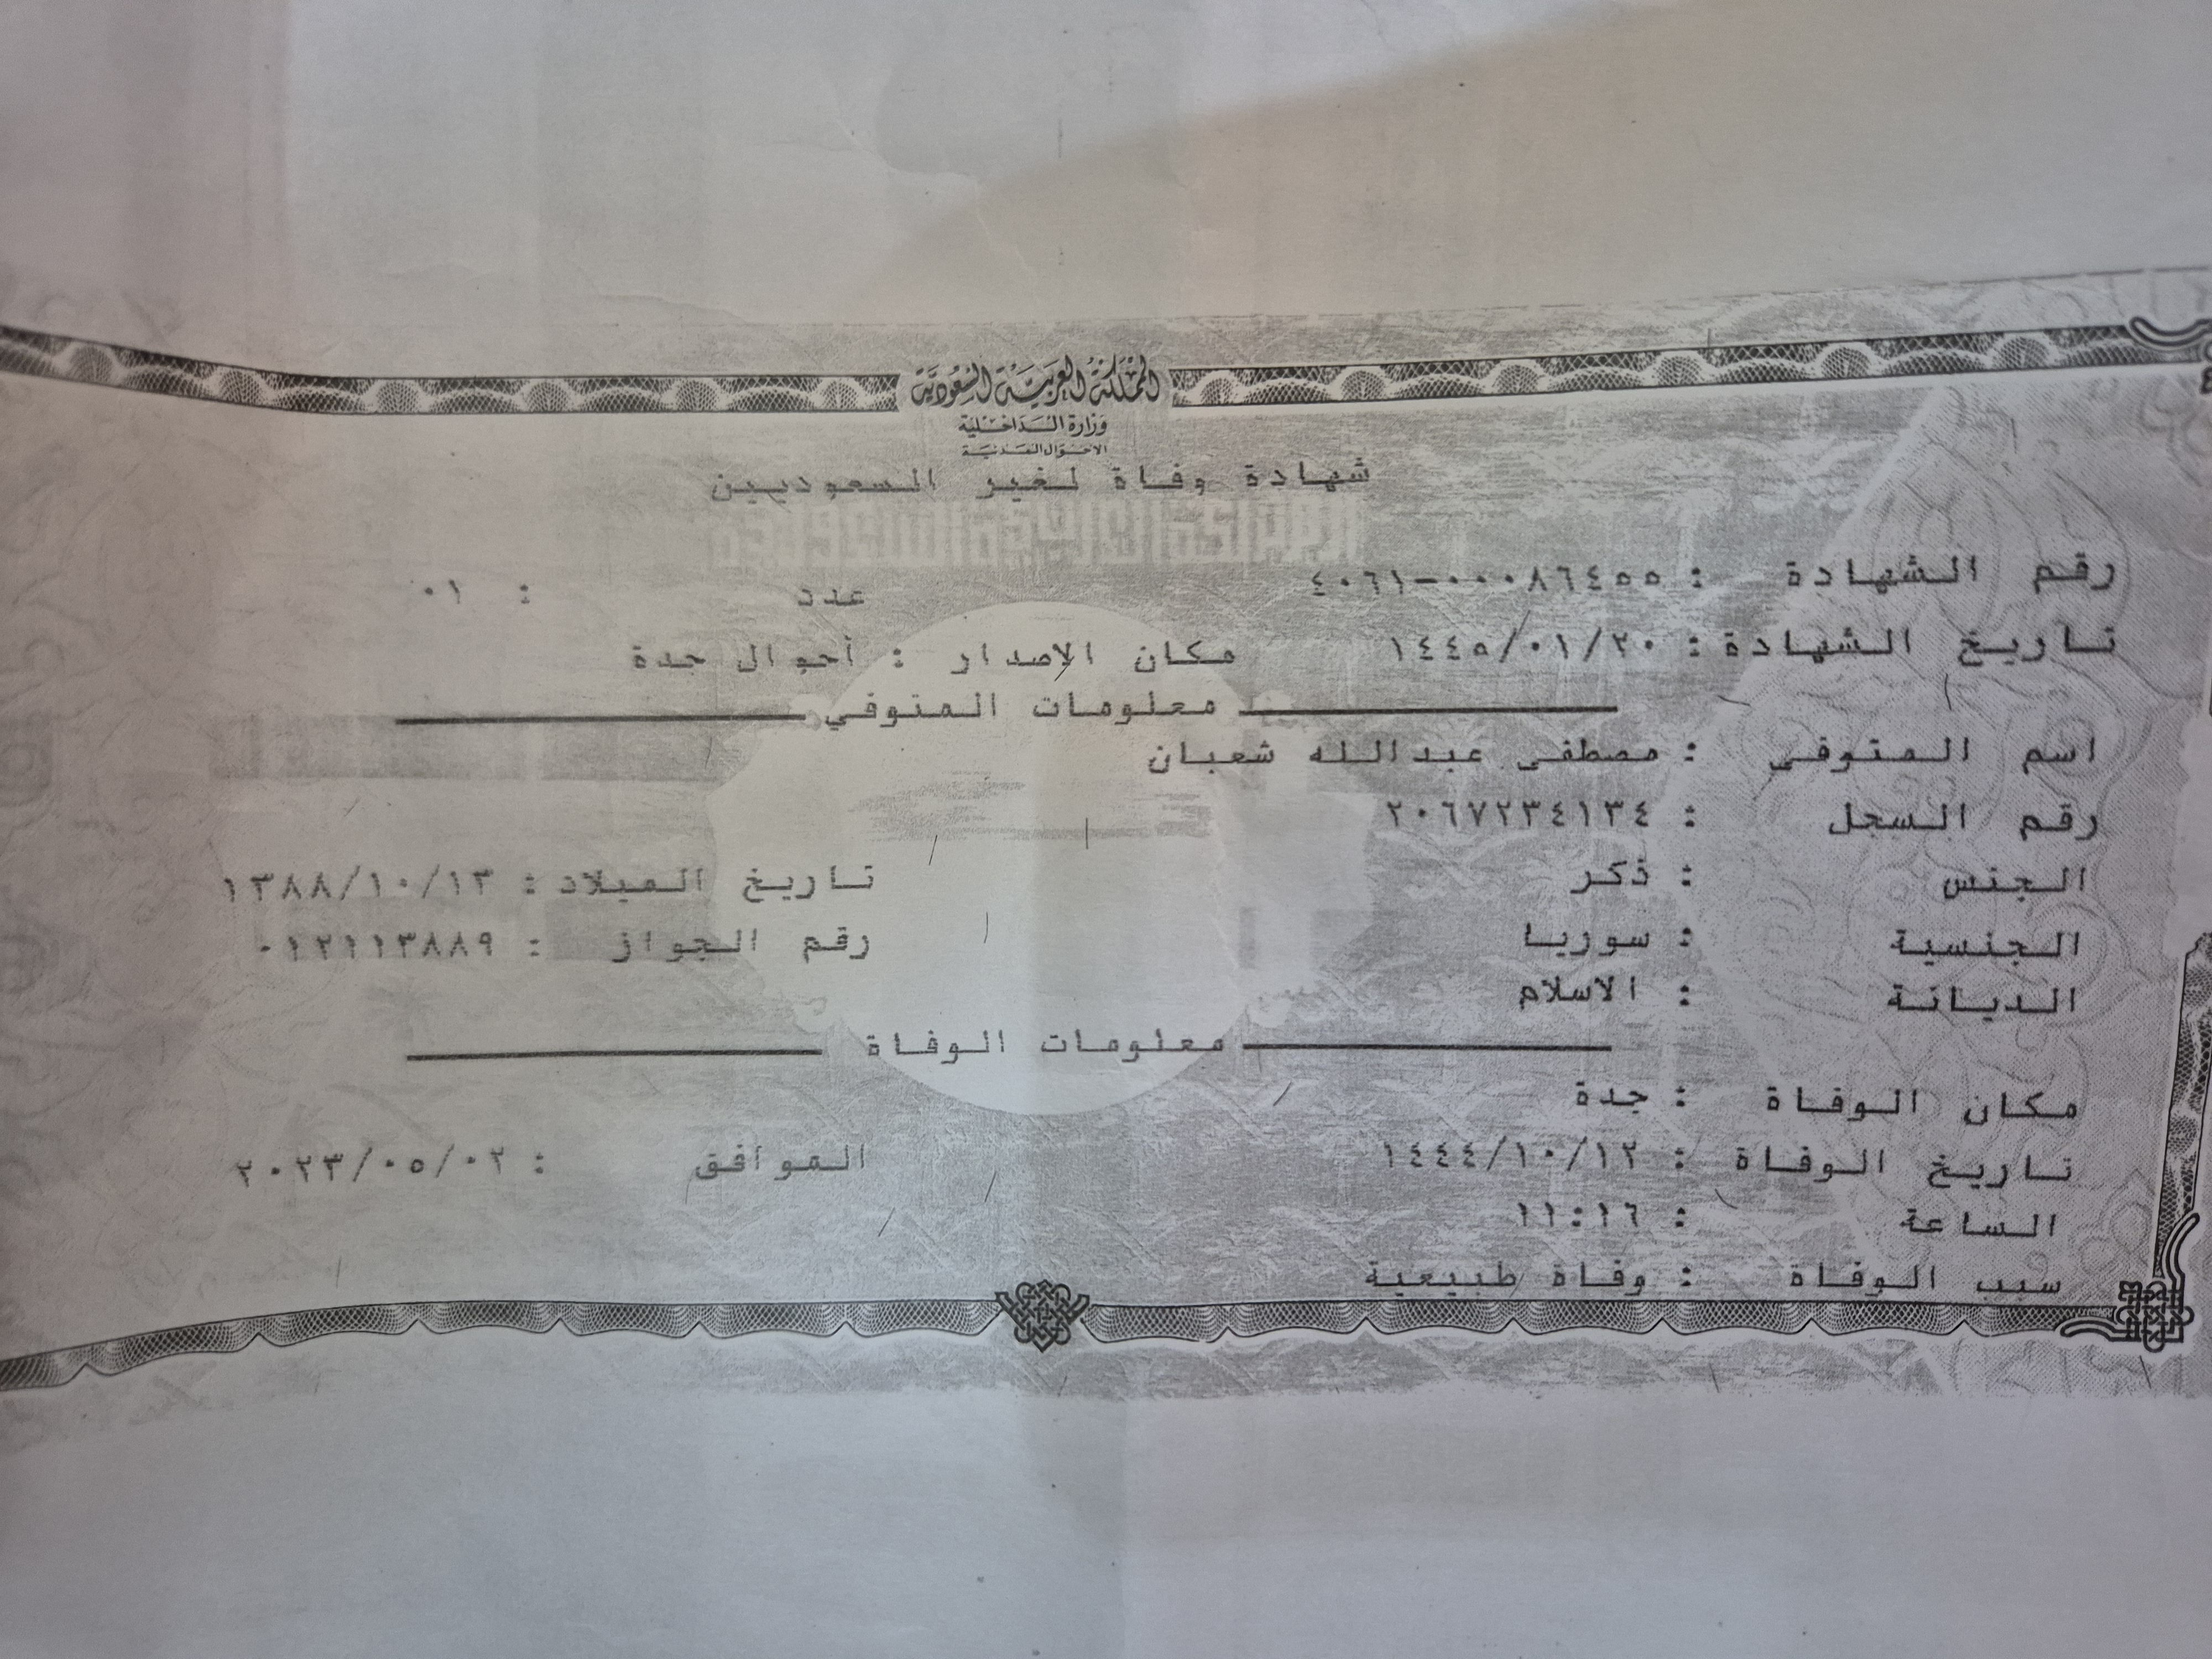 المملكة العربية السعودية
وزارة الداخلية
الأحوال المدنية
شهادة وفاة لغير السعوديين
المملكة العربية السعودية
رقم الشهادة : ٤٠٦١-٠٠٠٨٦٤٥٥ عدد : ٠١
تاريخ الشهادة : ١٤٤٥/٠١/٢٠ مكان الإصدار : أحوال جدة
معلومات المتوفي
اسم المتوفى : مصطفى عبدالله شعبان
رقم السجل : ٢٠٦٧٢٣٤١٣٤
الجنس : ذكر تاريخ الميلاد : ١٣٨٨/١٠/١٣
الجنسية : سوريا رقم الجواز : ٠١٢١١٣٨٨٩
الديانة : الاسلام
معلومات الوفاة
مكان الوفاة : جدة
تاريخ الوفاة : ١٤٤٤/١٠/١٢ الموافق : ٢٠٢٣/٠٥/٠٢
الساعة : ١١:١٦
سبب الوفاة : وفاة طبيعية